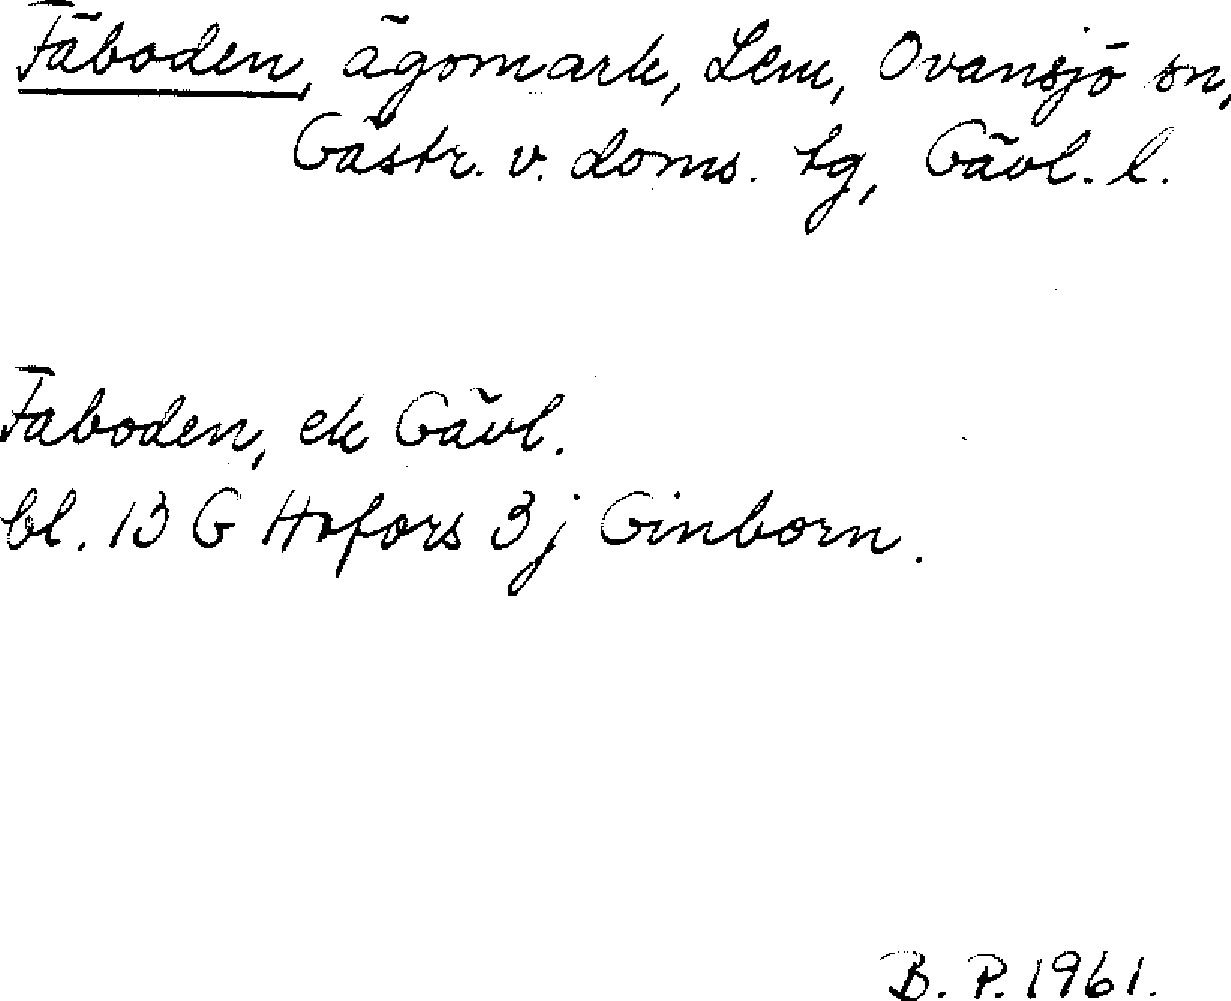 Fäboden, ägomark, Lem, Ovansjö sn,
Gästr. v. doms. tg, Gävl. l.
Fäboden, ek Gävl.
bl. 13 G Hofors 3 j Ginborn.
B. P. 1961.